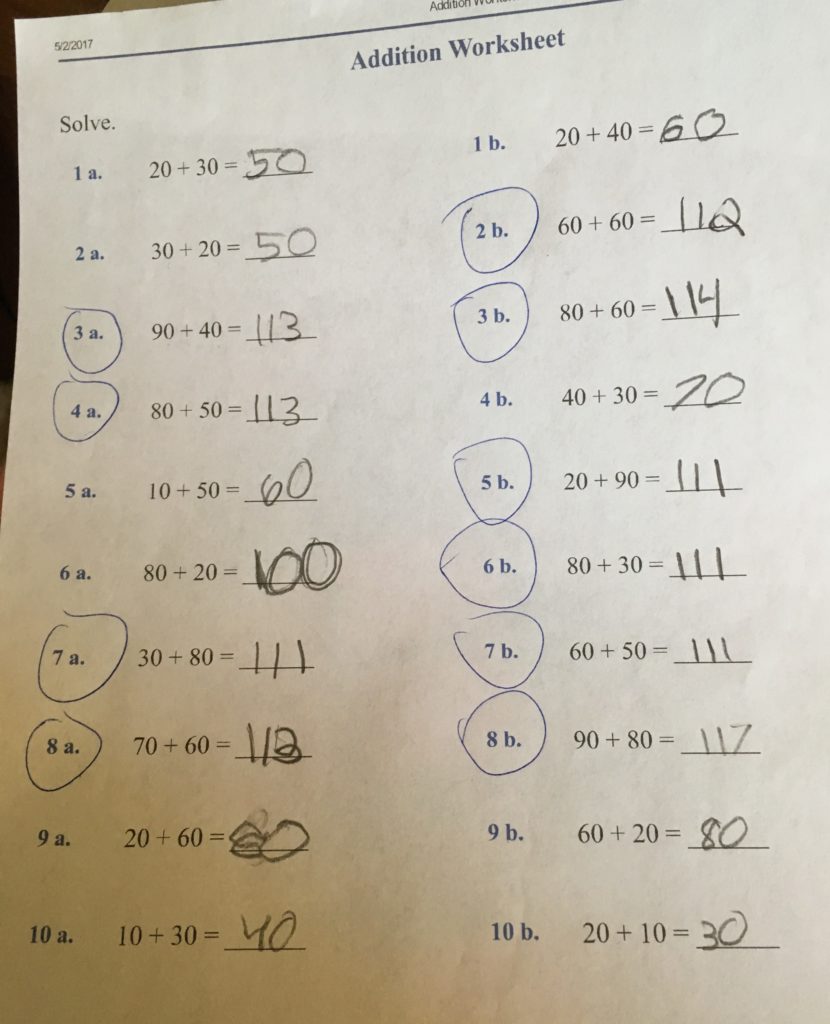 Addition
5/2/2017
Addition Worksheet
Solve.
1 a. 20 + 30 = 50 1 b. 20 + 40 = 60
2 a. 30 + 20 = 50 2 b. 60 + 60 = 112
3 a. 90 + 40 = 113 3 b. 80 + 60 = 114
4 a. 80 + 50 = 113 4 b. 40 + 30 = 70
5 a. 10 + 50 = 60 5 b. 20 + 90 = 111
6 a. 80 + 20 = 100 6 b. 80 + 30 = 111
7 a. 30 + 80 = 111 7 b. 60 + 50 = 111
8 a. 70 + 60 = 113 8 b. 90 + 80 = 117
9 a. 20 + 60 = 80 9 b. 60 + 20 = 80
10 a. 10 + 30 = 40 10 b. 20 + 10 = 30